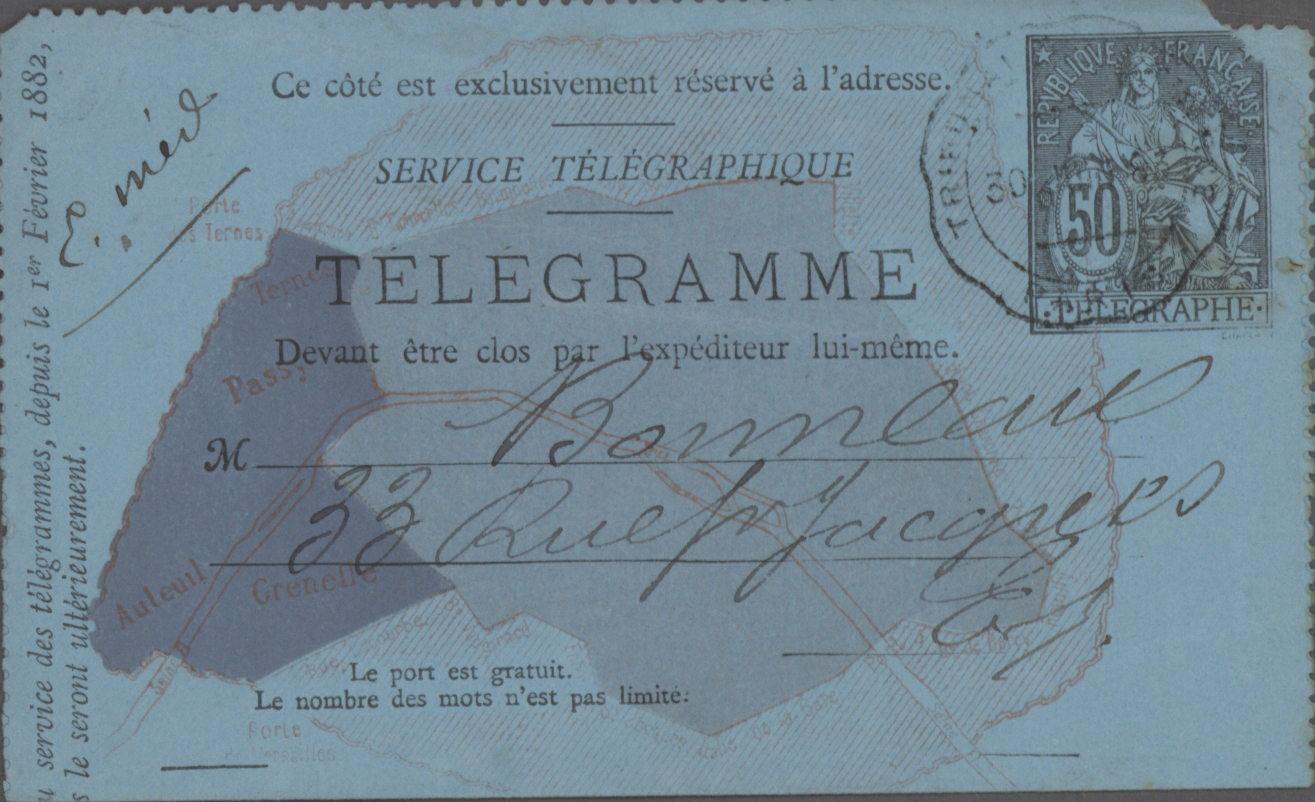 u service des télégrammes, depuis le 1er Février 1882,
s le seront ultérieurement.
méd
Ce côté est exclusivement réservé à l'adresse.
SERVICE TÉLÉGRAPHIQUE
TÉLÉGRAMME
Devant être clos par l'expéditeur lui-même.
REPUBLIQUE FRANÇAISE
50
TÉLÉGRAPHE
Porte
des Ternes
Ternes
Passy
M Bonneau
33 Rue St Jacques
Auteuil
Grenelle
Le port est gratuit.
Le nombre des mots n'est pas limité.
Porte
de Versailles